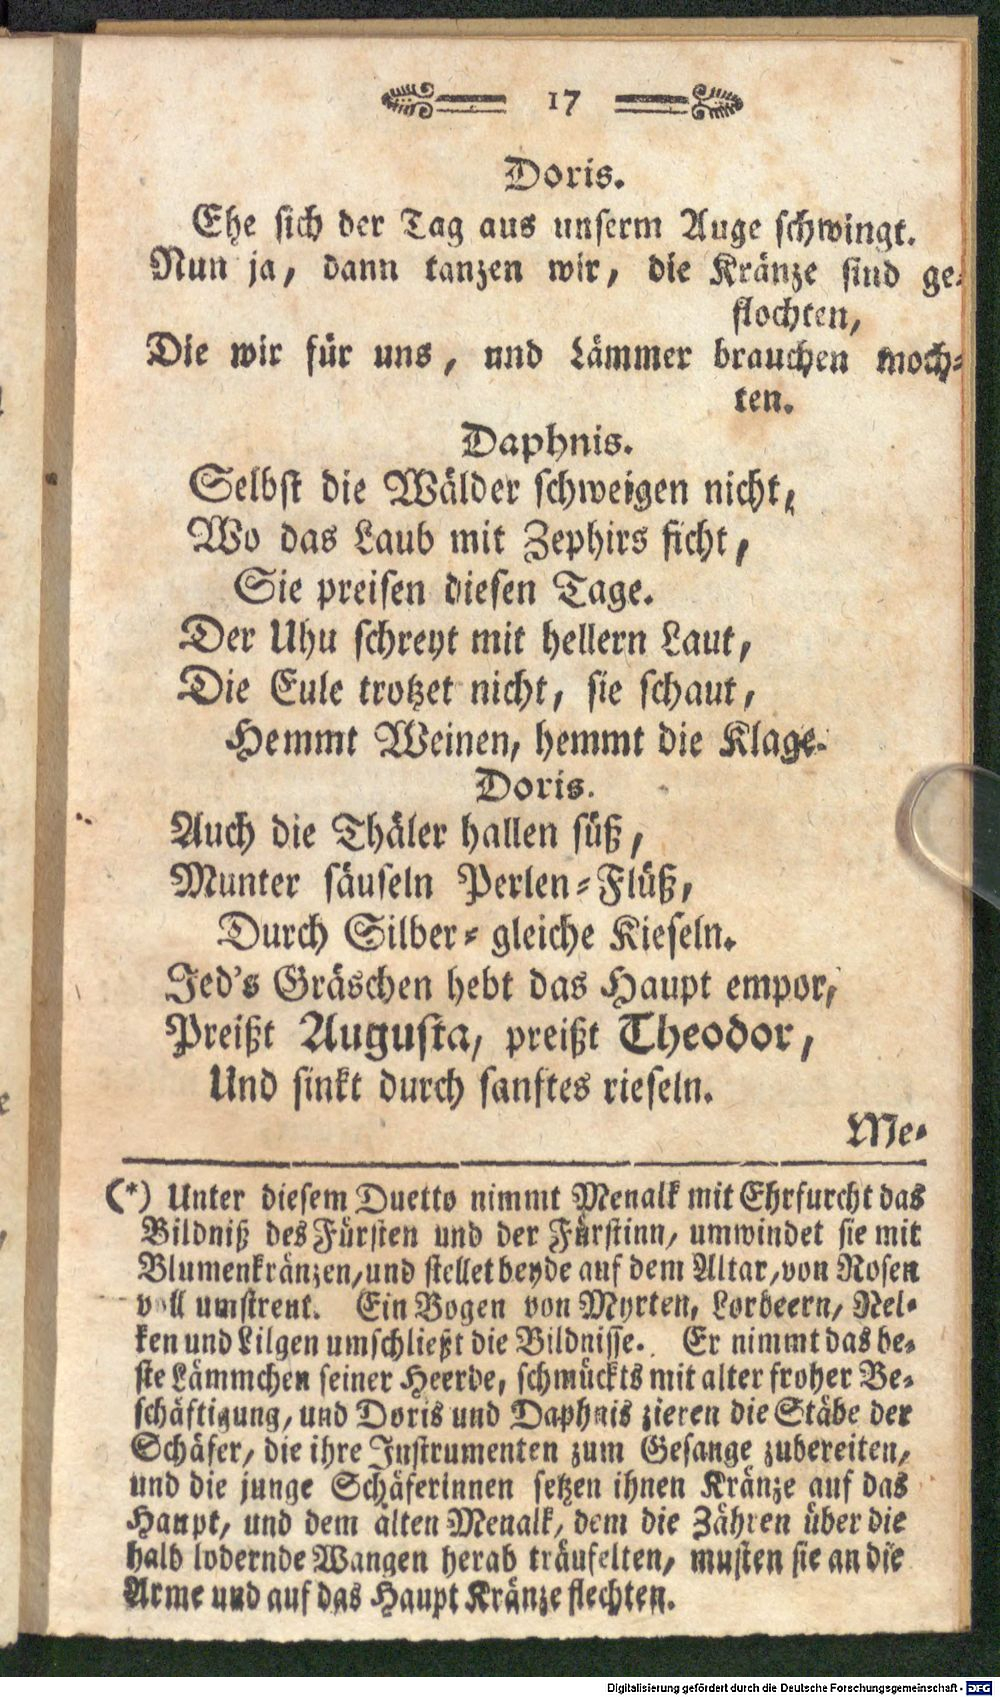 17
Doris.
Ehe sich der Tag aus unserm Auge schwingt.
Nun ja, dann tanzen wir, die Kränze sind ge-
flochten,
Die wir für uns, und Lämmer brauchen moch-
ten.
Daphnis.
Selbst die Wälder schweigen nicht,
Wo das Laub mit Zephirs ficht,
Sie preisen diesen Tage.
Der Uhu schreyt mit hellern Laut,
Die Eule trotzet nicht, sie schaut,
Hemmt Weinen, hemmt die Klage.
Doris.
Auch die Thäler hallen süß,
Munter säuseln Perlen-Flüß,
Durch Silber-gleiche Kieseln.
Jed's Gräschen hebt das Haupt empor,
Preißt Augusta, preißt Theodor,
Und sinkt durch sanftes rieseln.
Me-
(*) Unter diesem Duetto nimmt Menalk mit Ehrfurcht das
Bildniß des Fürsten und der Fürstinn, umwindet sie mit
Blumenkränzen, und stellet beyde auf dem Altar, von Rosen
voll umstreut. Ein Bogen von Myrten, Lorbeern, Nel-
ken und Lilgen umschließt die Bildnisse. Er nimmt das be-
ste Lämmchen seiner Heerde, schmückts mit alter froher Be-
schäftigung, und Doris und Daphnis zieren die Stäbe der
Schäfer, die ihre Instrumenten zum Gesange zubereiten,
und die junge Schäferinnen setzen ihnen Kränze auf das
Haupt, und dem alten Menalk, dem die Zähren über die
halb lodernde Wangen herab träufelten, musten sie an die
Arme und auf das Haupt Kränze flechten.
Digitalisierung gefördert durch die Deutsche Forschungsgemeinschaft - DFG